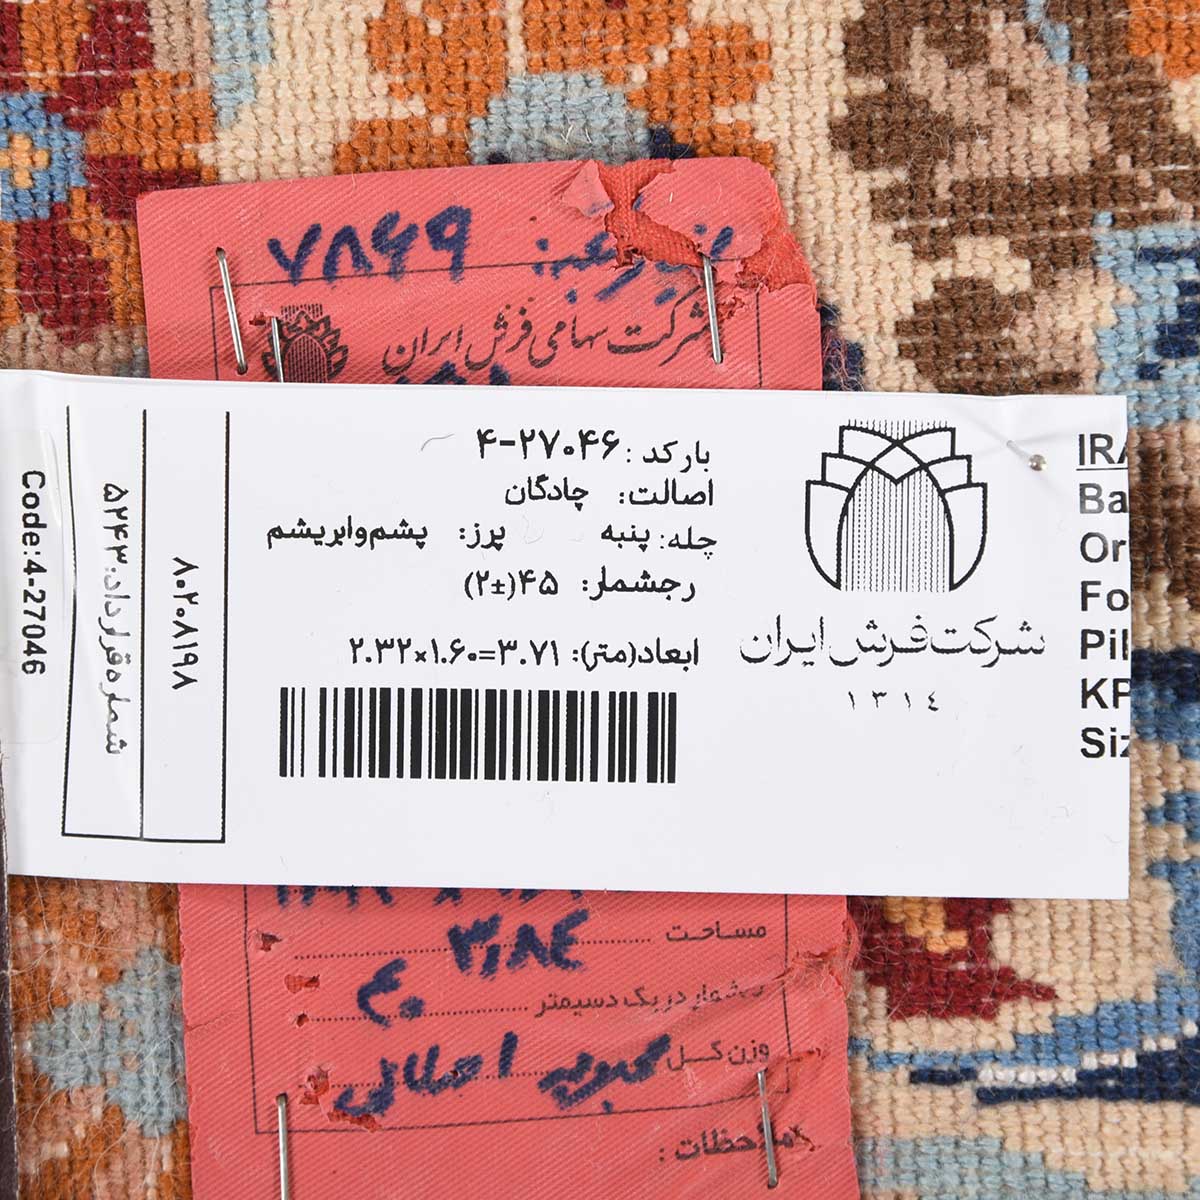 ۷۸۶۹
شرکت سهامی فرش ایران
بارکد: ۴-۲۷۰۴۶
اصالت: چادگان
چله: پنبه پرز: پشم و ابریشم
رجشمار: ۴۵(±۲)
ابعاد(متر): ۲.۳۲×۱.۶۰=۳.۷۱
شرکت فرش ایران
۱۳۱٤
IRA
Ba
Or
Fo
Pil
KP
Siz
۸۰۲۰۸۱۹۸
شماره قرارداد: ۵۲۴۳
Code:4-27046
مساحت ۳٫۸٤
رجشمار در یک دسیمتر ۴۰
وزن کل
ملاحظات :